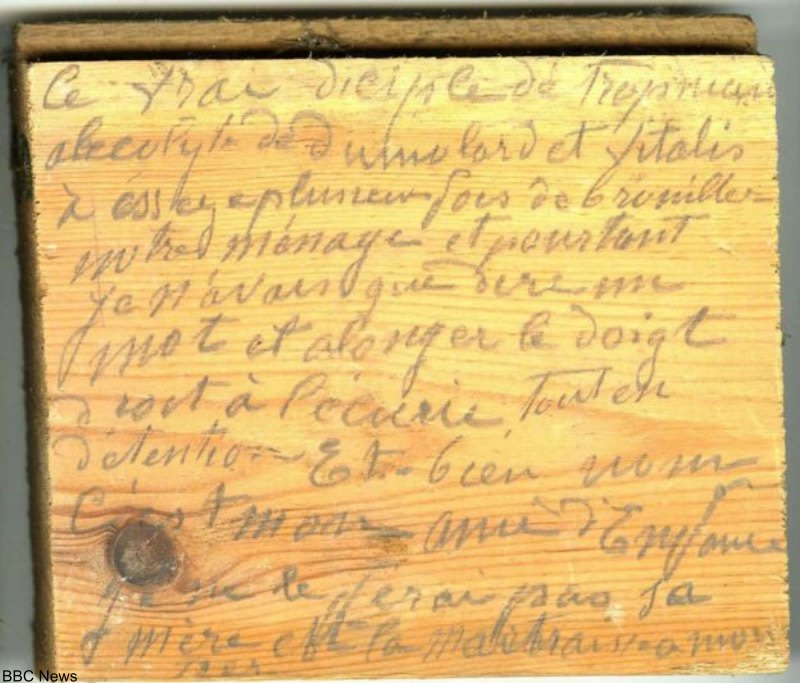 Ce vrai diciple de Tropman
acolyte de dumolard et fitalis
à éssayé plusieur fois de brouiller
notre ménage et pourtant
je n'avais que dire un
mot et alonger le doigt
droit à l'écurie, tout en
détention Et bien nom
C'est mon ami d'Enfance
je ne le ferai pas sa
mère est la maitraisse a mon
per
BBC News